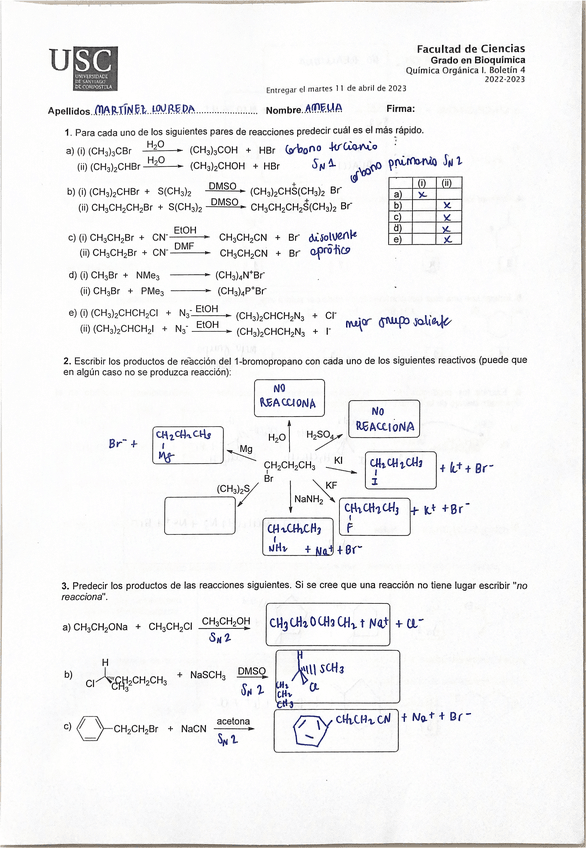 USC
UNIVERSIDADE
DE SANTIAGO
DE COMPOSTELA
Facultad de Ciencias
Grado en Bioquímica
Química Orgánica I. Boletín 4
2022-2023
Entregar el martes 11 de abril de 2023
Apellidos MARTÍNEZ LOUREDA Nombre AMELIA Firma:
1. Para cada uno de los siguientes pares de reacciones predecir cuál es el más rápido.
a) (i) (CH3)3CBr H2O → (CH3)3COH + HBr Carbono terciario
SN1
(ii) (CH3)2CHBr H2O → (CH3)2CHOH + HBr carbono primario SN2
b) (i) (CH3)2CHBr + S(CH3)2 DMSO → (CH3)2CHS+(CH3)2 Br-
(ii) CH3CH2CH2Br + S(CH3)2 DMSO → CH3CH2CH2S+(CH3)2 Br-
(i) (ii)
a) x
b) x
c) x
d) x
e) x
c) (i) CH3CH2Br + CN- EtOH → CH3CH2CN + Br- disolvente
(ii) CH3CH2Br + CN- DMF → CH3CH2CN + Br- aprótico
d) (i) CH3Br + NMe3 → (CH3)4N+Br-
(ii) CH3Br + PMe3 → (CH3)4P+Br-
e) (i) (CH3)2CHCH2Cl + N3- EtOH → (CH3)2CHCH2N3 + Cl-
(ii) (CH3)2CHCH2I + N3- EtOH → (CH3)2CHCH2N3 + I-
mejor grupo saliente
2. Escribir los productos de reacción del 1-bromopropano con cada uno de los siguientes reactivos (puede que
en algún caso no se produzca reacción):
NO
REACCIONA
NO
REACCIONA
H2O
H2SO4
Br- + CH2CH2CH3
Mg
Mg
KI
CH2CH2CH3
I
+ K+ + Br-
CH2CH2CH3
Br
(CH3)2S
KF
CH2CH2CH3
F
+ K+ + Br-
NaNH2
CH2CH2CH3
NH2
+ Na+ + Br-
3. Predecir los productos de las reacciones siguientes. Si se cree que una reacción no tiene lugar escribir "no
reacciona".
a) CH3CH2ONa + CH3CH2Cl CH3CH2OH → CH3CH2OCH2CH3 + Na+ + Cl-
SN2
b) H
Cl CH2CH2CH3
CH3
+ NaSCH3 DMSO →
SN2
H
SCH3
Cl
CH2
CH2
CH3
c) CH2CH2Br + NaCN acetona → CH2CH2CN + Na+ + Br-
SN2